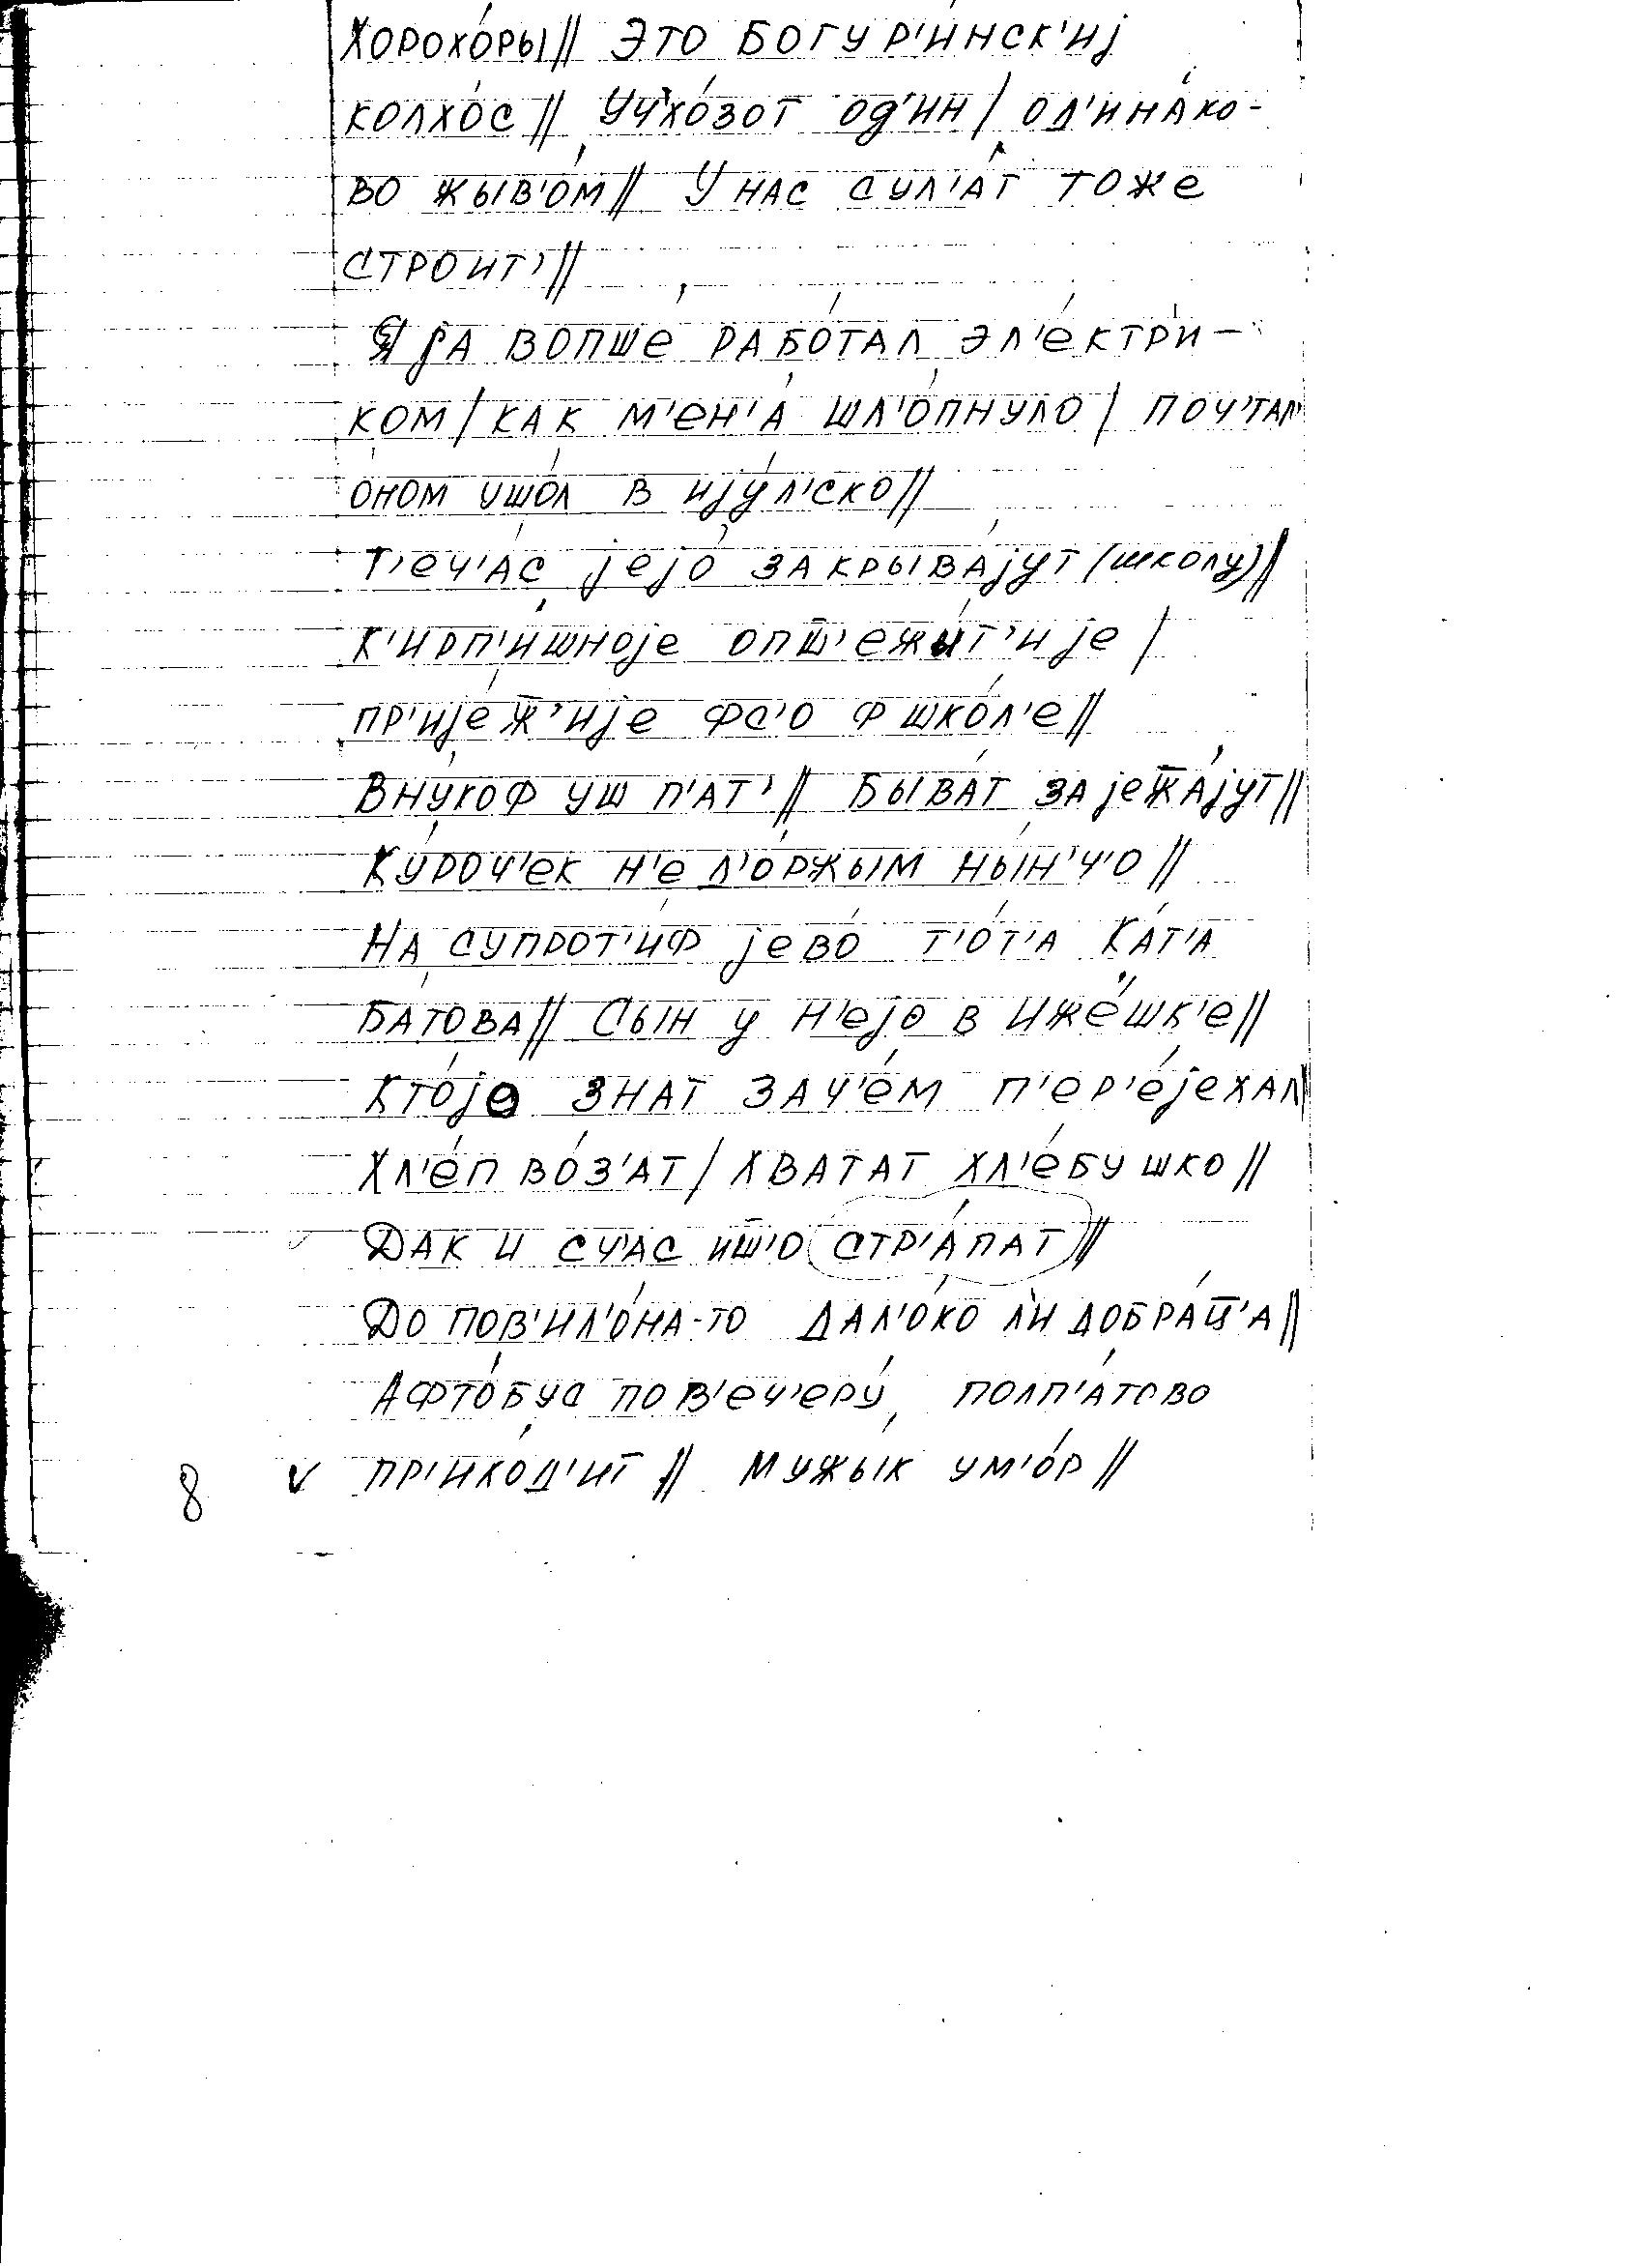 Хорохо́ры// Это Богур'и́нск'иj
колхо́с// Уч'хо́зот од'ин/ од'ина́ко-
во жыв'о́м// У нас сул'а́т тоже
строит'//
jа вопше рабо́тал эл'е́ктри-
ком/ как м'ен'а́ шл'о́пнуло/ поч'тал'
о́ном ушо́л в иjу́л'ско//
Т'еч'а́с jеjо́ закрыва́jут (школу)//
К'ирп'и́шноjе опш̄'ежы́т'иjе/
пр'иjе́ж̄'иjе фс'о ф шко́л'е//
Вну́коф уш п'ат'// Быва́т заjеж̄а́jут//
Ку́роч'ек н'е д'о́ржым ны́н'ч'о//
На супрот'и́ф jево́ т'о́т'а Ка́т'а
Ба́това// Сын у н'еjо́ в Иже́шк'е//
Кто́jо знат зач'е́м п'ер'е́jехал//
Хл'е́п во́з'ат/ хватат хл'е́бушко//
Дак и сч'ас иш̄'о стр'а́пат//
До пов'ил'о́на-то дал'о́ко л'и добра́ц̄'а//
Афто́бус пов'еч'еру́, полп'а́тово
8 ✓ пр'ихо́д'ит// мужы́к ум'о́р//